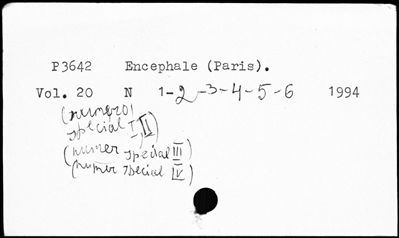 P3642 Encephale (Paris).
Vol. 20 N 1-2-3-4-5-6 1994
(numero)
special I, II)
(numer special III)
(numer special IV)